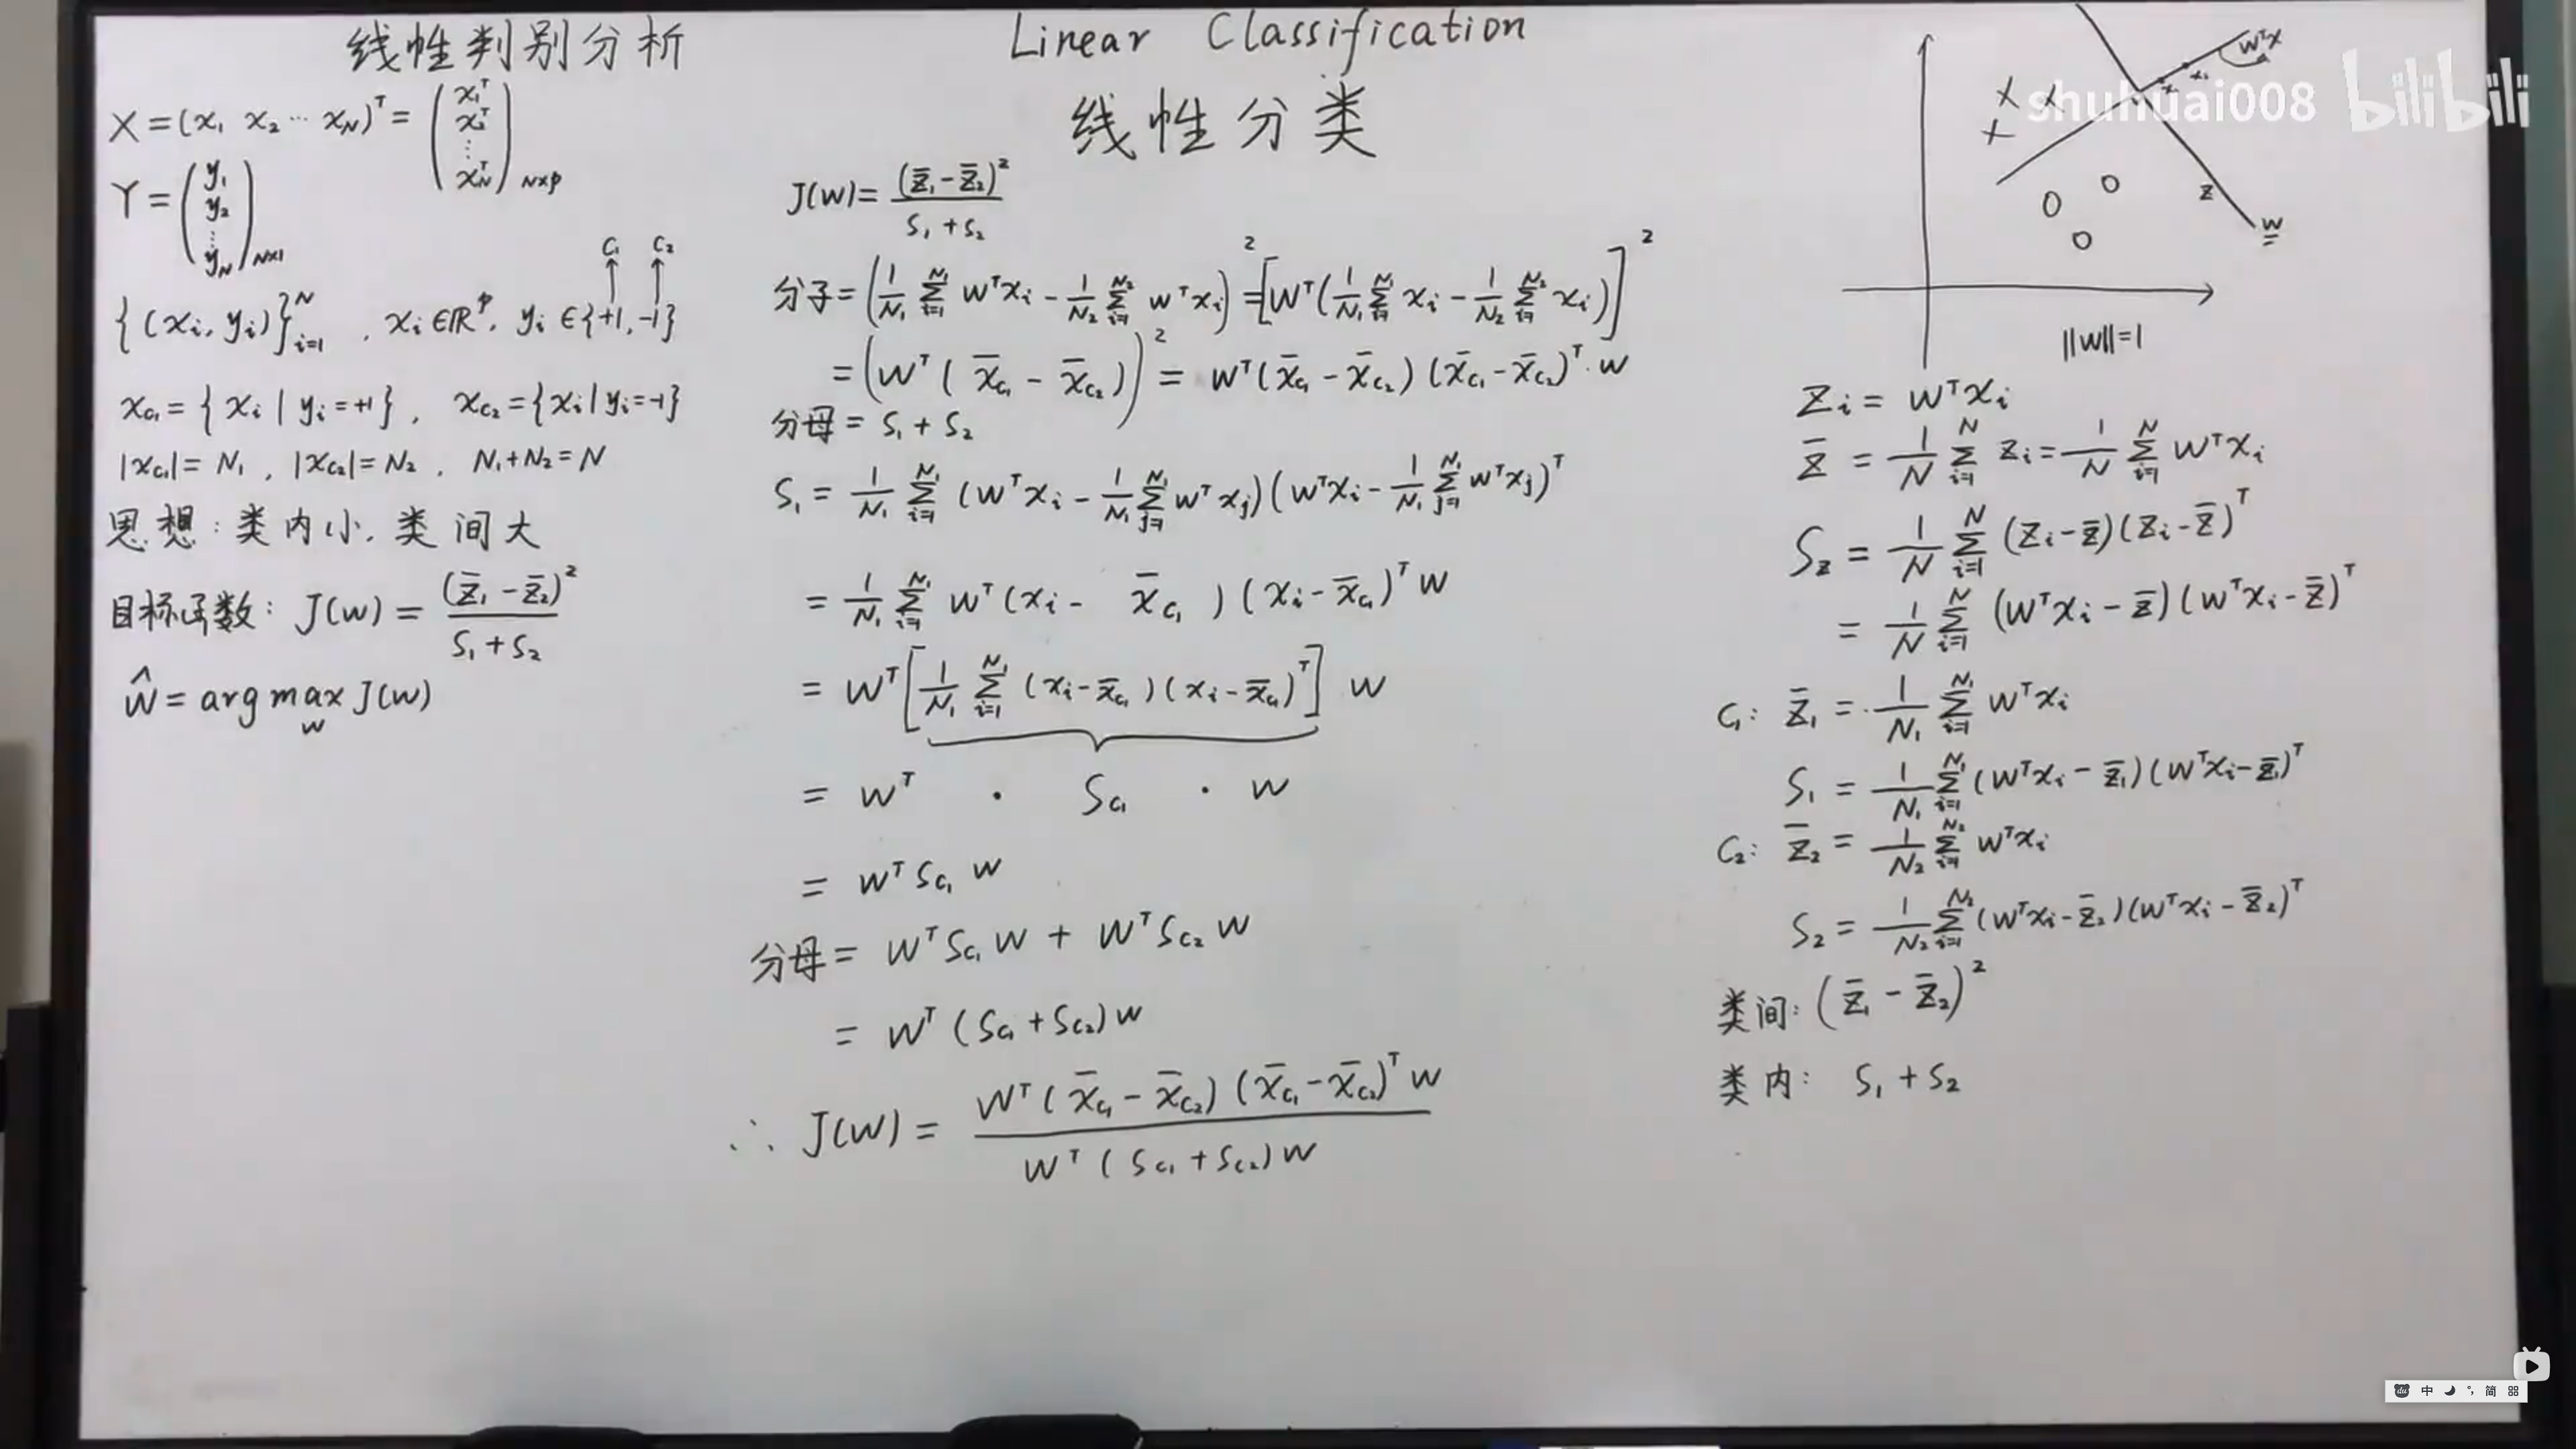 线性判别分析
X = (x₁ x₂ ⋯ x_N)ᵀ = (x₁ᵀ x₂ᵀ ⋮ x_Nᵀ)_{N×p}
Y = (y₁ y₂ ⋮ y_N)_{N×1}
C₁ C₂
{(xᵢ, yᵢ)}ᵢ₌₁ᴺ , xᵢ ∈ ℝᵖ, yᵢ ∈ {+1, -1}
x_{C₁} = {xᵢ | yᵢ = +1}, x_{C₂} = {xᵢ | yᵢ = -1}
|x_{C₁}| = N₁, |x_{C₂}| = N₂, N₁ + N₂ = N
思想: 类内小, 类间大
目标函数: J(w) = (z̄₁ - z̄₂)² / (S₁ + S₂)
ŵ = arg max_w J(w)
Linear Classification
线性分类
J(w) = (z̄₁ - z̄₂)² / (S₁ + S₂)
分子 = (1/N₁ Σᵢ₌₁^{N₁} wᵀxᵢ - 1/N₂ Σᵢ₌₁^{N₂} wᵀxᵢ)² = [wᵀ(1/N₁ Σᵢ₌₁^{N₁} xᵢ - 1/N₂ Σᵢ₌₁^{N₂} xᵢ)]²
= (wᵀ(x̄_{C₁} - x̄_{C₂}))² = wᵀ(x̄_{C₁} - x̄_{C₂})(x̄_{C₁} - x̄_{C₂})ᵀ · w
分母 = S₁ + S₂
S₁ = 1/N₁ Σᵢ₌₁^{N₁} (wᵀxᵢ - 1/N₁ Σⱼ₌₁^{N₁} wᵀxⱼ)(wᵀxᵢ - 1/N₁ Σⱼ₌₁^{N₁} wᵀxⱼ)ᵀ
= 1/N₁ Σᵢ₌₁^{N₁} wᵀ(xᵢ - x̄_{C₁})(xᵢ - x̄_{C₁})ᵀ w
= wᵀ[1/N₁ Σᵢ₌₁^{N₁} (xᵢ - x̄_{C₁})(xᵢ - x̄_{C₁})ᵀ] w
= wᵀ · S_{C₁} · w
= wᵀ S_{C₁} w
分母 = wᵀ S_{C₁} w + wᵀ S_{C₂} w
= wᵀ(S_{C₁} + S_{C₂})w
∴ J(w) = wᵀ(x̄_{C₁} - x̄_{C₂})(x̄_{C₁} - x̄_{C₂})ᵀ w / wᵀ(S_{C₁} + S_{C₂})w
wᵀx
xᵢ
shuhuai008 bilibili
z
w
‖w‖ = 1
zᵢ = wᵀxᵢ
z̄ = 1/N Σᵢ₌₁ᴺ zᵢ = 1/N Σᵢ₌₁ᴺ wᵀxᵢ
S_z = 1/N Σᵢ₌₁ᴺ (zᵢ - z̄)(zᵢ - z̄)ᵀ
= 1/N Σᵢ₌₁ᴺ (wᵀxᵢ - z̄)(wᵀxᵢ - z̄)ᵀ
C₁: z̄₁ = 1/N₁ Σᵢ₌₁^{N₁} wᵀxᵢ
S₁ = 1/N₁ Σᵢ₌₁^{N₁} (wᵀxᵢ - z̄₁)(wᵀxᵢ - z̄₁)ᵀ
C₂: z̄₂ = 1/N₂ Σᵢ₌₁^{N₂} wᵀxᵢ
S₂ = 1/N₂ Σᵢ₌₁^{N₂} (wᵀxᵢ - z̄₂)(wᵀxᵢ - z̄₂)ᵀ
类间: (z̄₁ - z̄₂)²
类内: S₁ + S₂
du 中 简